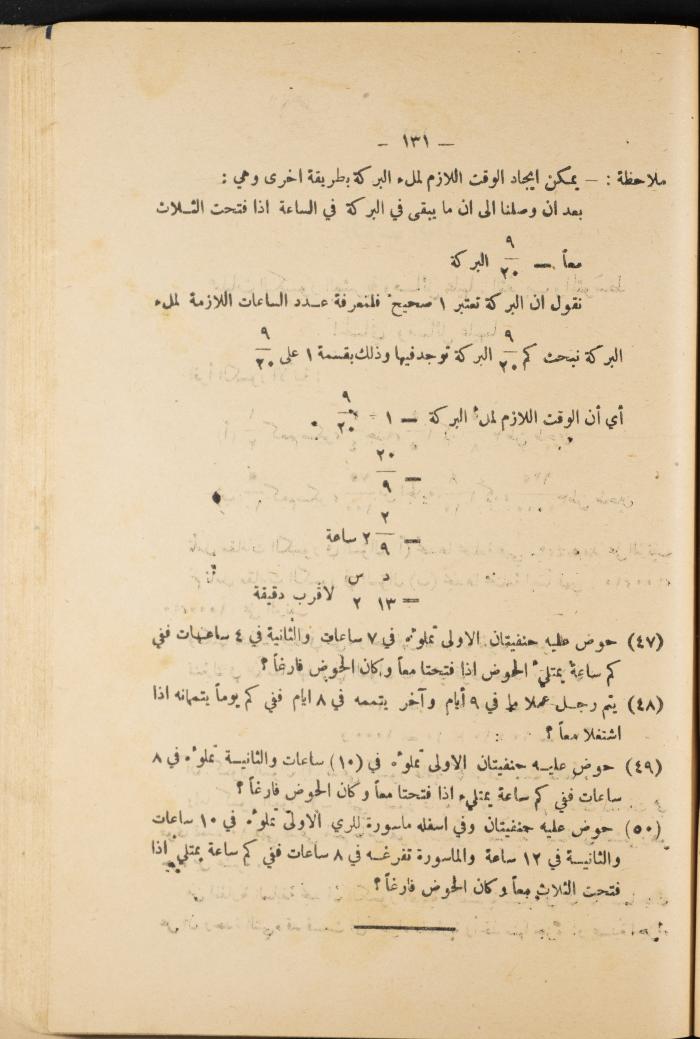 — ١٣١ —
ملاحظة : — يمكن ايجاد الوقت اللازم لملء البركة بطريقة اخرى وهي :
بعد ان وصلنا الى ان ما يبقى في البركة في الساعة اذا فتحت الثلاث
معاً = ٩/٢٠ البركة
نقول ان البركة تعتبر ١ صحيح فلمعرفة عدد الساعات اللازمة لملء
البركة نبحث كم ٩/٢٠ البركة توجد فيها وذلك بقسمة ١ على ٩/٢٠
أي أن الوقت اللازم لملء البركة = ١ ÷ ٩/٢٠
= ٢٠/٩
= ٢/٩ ٢ ساعة
د س
= ١٣ ٢ لأقرب دقيقة
(٤٧) حوض عليه حنفيتان الاولى تملؤه في ٧ ساعات والثانية في ٤ ساعات ففي
كم ساعة يمتلئ الحوض اذا فتحتا معاً وكان الحوض فارغاً ؟
(٤٨) يتم رجل عملا ما في ٩ أيام وآخر يتممه في ٨ ايام ففي كم يوماً يتمانه اذا
اشتغلا معاً ؟
(٤٩) حوض عليه حنفيتان الاولى تملؤه في (١٠) ساعات والثانية تملؤه في ٨
ساعات ففي كم ساعة يمتليء اذا فتحتا معاً وكان الحوض فارغاً ؟
(٥٠) حوض عليه حنفيتان وفي اسفله ماسورة للري الاولى تملؤه في ١٠ ساعات
والثانية في ١٢ ساعة والماسورة تفرغه في ٨ ساعات ففي كم ساعة يمتلئ اذا
فتحت الثلاث معاً وكان الحوض فارغاً ؟